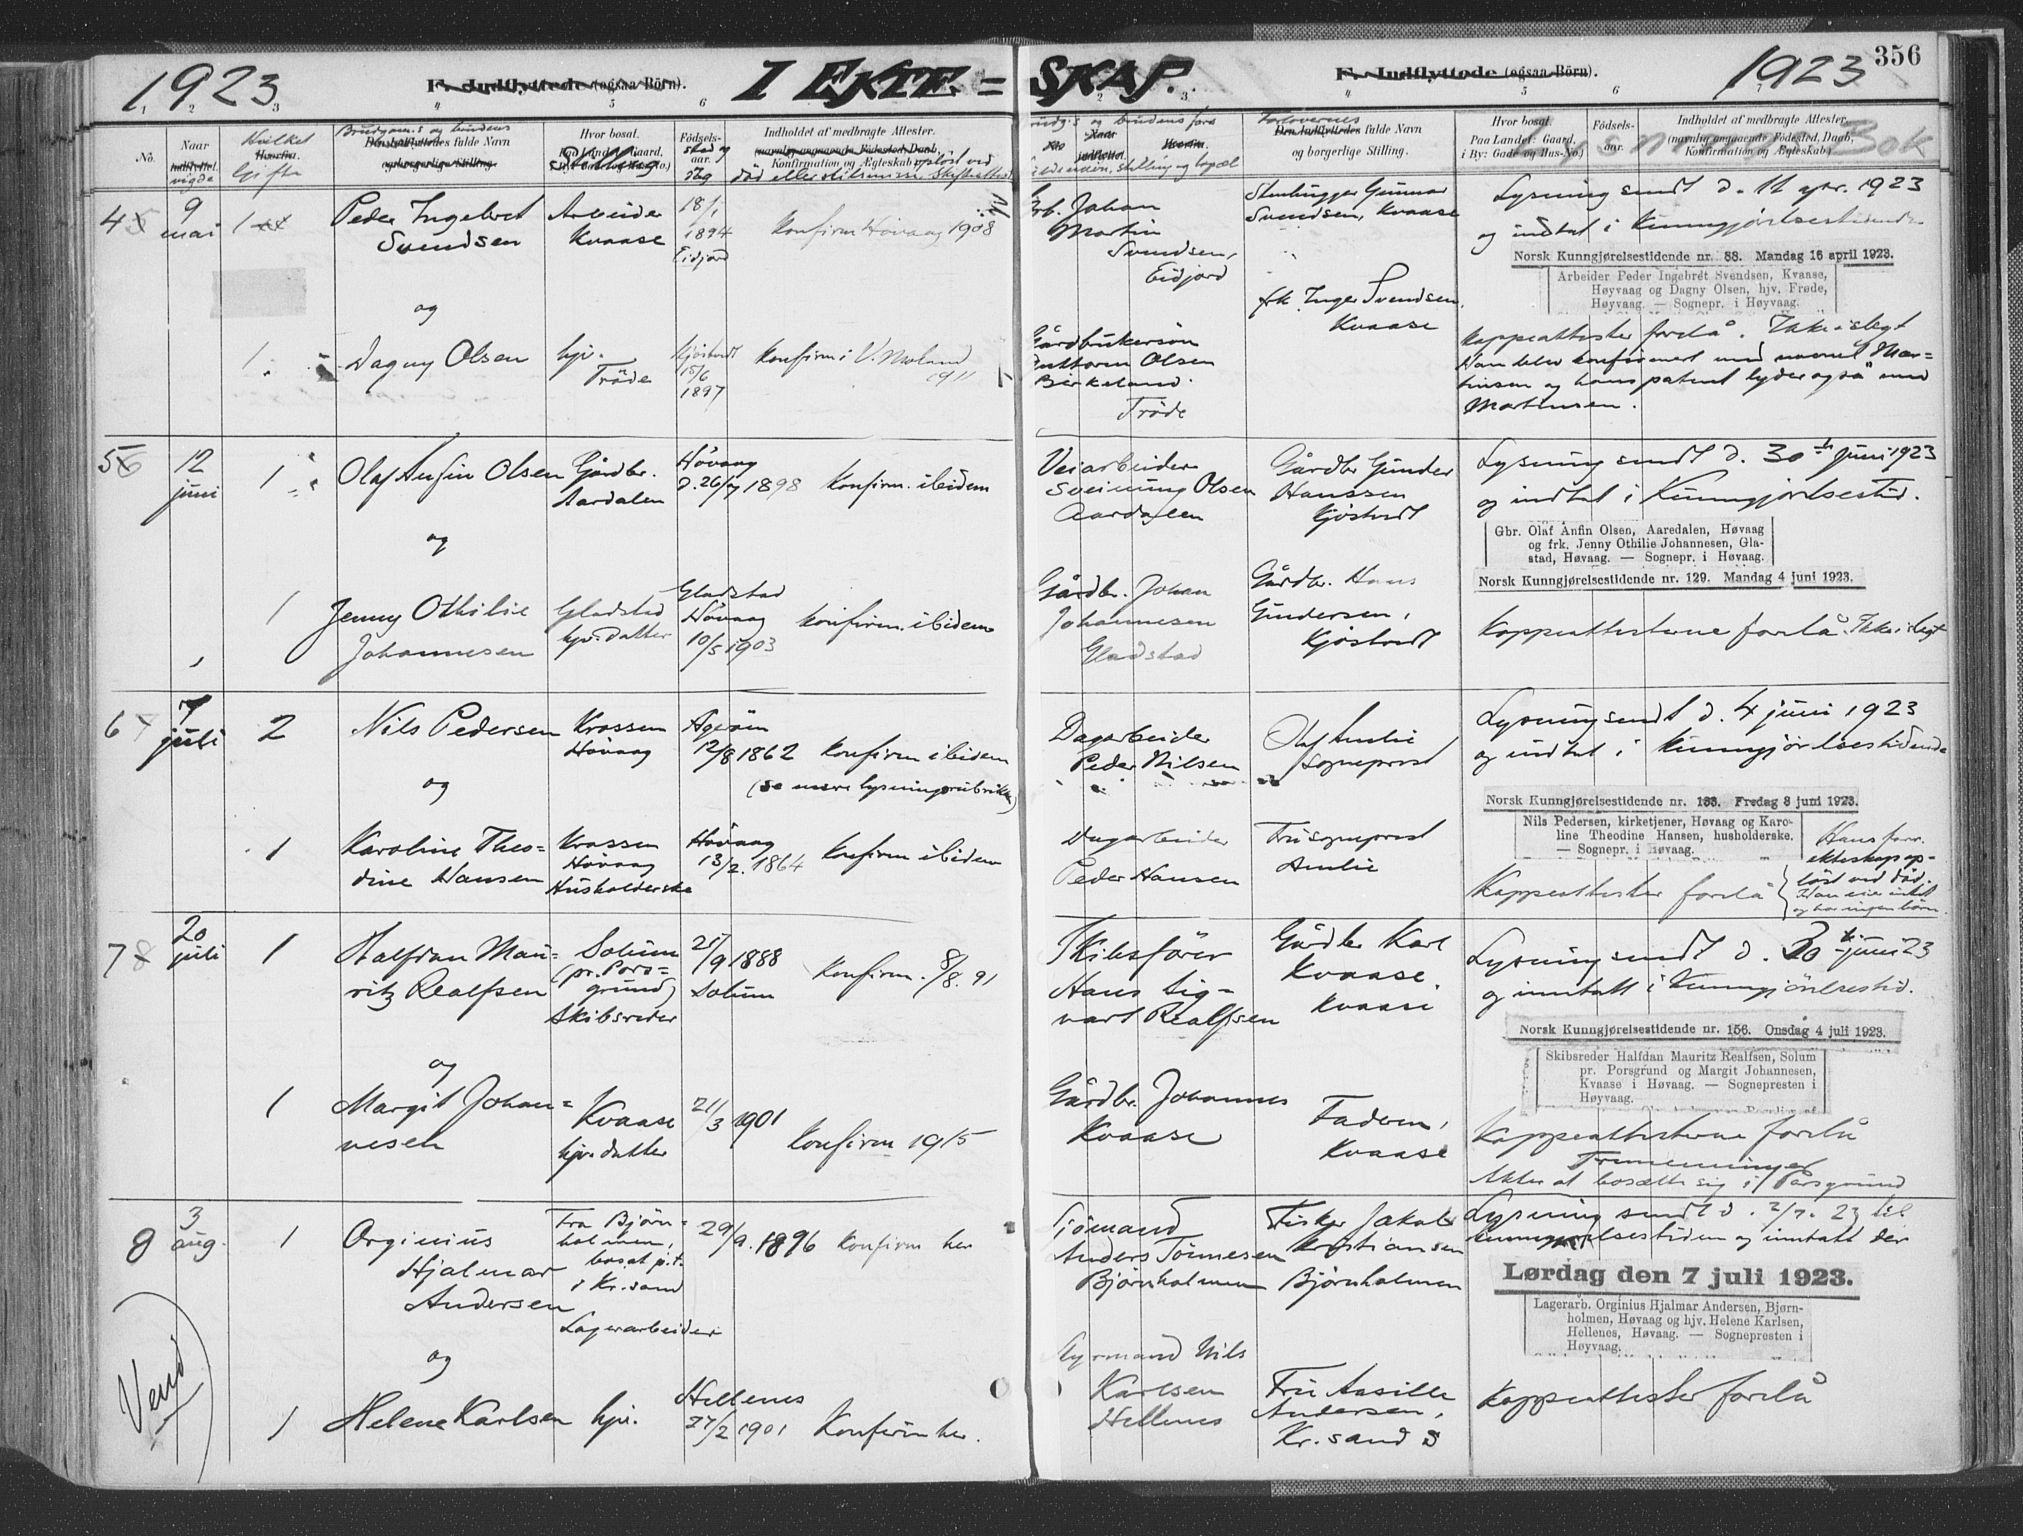 1923
F. Indflyttede (ogsaa Börn).
I EKTE=
SKAP.
F. Indflyttede (ogsaa Börn).
1923
356
No.
Naar
indflyttet.
vigde
Hvilket
Gifte
Brudgom.s og brudens
Den Indflyttedes fulde Navn
og borgerlige Stilling.
Hvor bosat.
Stilling
Födsels-
sted og
aar.
dag
Indholdet af medbragte Attester.
(navnlig angaaende Födested, Daab,
Konfirmation og Ægteskab)
Forlovernes
Den Indflyttedes fulde Navn
og borgerlige Stilling.
Hvor bosat.
Paa Landet: Gaard,
i By: Gade og Hus-No.)
Födsels-
aar.
Indholdet af medbragte Attester.
(navnlig angaaende Födested, Daab,
Konfirmation og Ægteskab)
Lysnings Bok
4
9
mai
1
Peder Ingebret
Svendsen
Arbeider
Kvaase
18/1
1894
Eidjord
Konfirm Høvaag 1908
Arb. Johan
Martin
Svendsen,
Eidjord
Stenhugger Gunnar
Svendsen, Kvaase
Lysning sendt d. 11 apr. 1923
og indtat i Kunngjørelsestidende
Norsk Kunngjørelsestidende nr. 88. Mandag 16 april 1923.
Arbeider Peder Ingebrét Svendsen, Kvaase,
Høyvaag og Dagny Olsen, hjv. Frøde,
Høyvaag. — Sognepr. i Høyvaag.
og
1
Dagny Olsen
hjv.
Tröde
15/6
1897
Konfirm i V. Moland
1911
Gårdbrukerson
Guttorm Olsen
Birkeland.
Tröde
frk. Inger Svendsen
Kvaase
Kappeattester forelå. Ikke i slegt
Han blev konfirmert med navnet Mar=
tinsen og hans patent lyder også med
Martinsen.
5
12
juni
1
Olaf Anfin Olsen
Gårdbr.
Aardalen
Høvaag
d. 26/7 1898
Konfirm. ibidem
Veiarbeider
Sveinung Olsen
Aardalen
Gårdbr Gunder
Hanssen
Kjøstvedt
Lysning sendt d. 30te juni 1923
og indtat i Kunngjørelsestid.
Gbr. Olaf Anfin Olsen, Aaredalen, Høvaag
og frk. Jenny Othilie Johannesen, Gla-
stad, Høvaag. — Sognepr. i Høvaag.
Norsk Kunngjørelsestidende nr. 129. Mandag 4 juni 1923.
og
1
Jenny Othilie
Johannesen
Gladstad
hjv. datter
Gladstad
Høvaag
10/5 1903
Konfirm. ibidem
Gårdbr. Johan
Johannesen
Gladstad
Gårdbr. Hans
Gundersen,
Kjøstvedt
Kappeattesterne forelå. Ikke i slegt
6
7
juli
2
Nils Pedersen
Krossen
Høvaag
Agerøen
12/8 1862
Konfirm ibidem
(se mere lysningsrubrikken)
Dagarbeider
Peder Nilsen
Olaf Amlie
Sogneprest
Lysning sendt d. 4 juni 1923
og indtat i Kunngjørelsestidende
Norsk Kunngjørelsestidende nr. 133. Fredag 8 juni 1923.
Nils Pedersen, kirketjener, Høvaag og Karo-
line Theodine Hansen, husholderske.
— Sognepr. i Høvaag.
Hans forr.
ekteskap op-
løst ved død.
Han eier intet
og har ingen börn.
og
1
Karoline Theo=
dine Hansen
Krossen
Høvaag
Husholderske
Høvaag
13/2. 1864
Konfirm ibidem
Dagarbeider
Peder Hansen
Fru sogneprest
Amlie
Kappeattester forelå
7
20
juli
1
Halfdan Mau=
ritz Realfsen
Solum
(pr. Pors=
grund)
Skibsreder
25/9 1888
Solum
Konfirm. 8/8. 91
Skibsfører
Hans Sig=
vart Realfsen
Gårdbr Karl
Kvaase
Kvaase
Lysning sendt d. 30te juni 23
og inntatt i Kunngjörelsestid.
Norsk Kunngjørelsestidende nr. 156. Onsdag 4 juli 1923.
Skibsreder Halfdan Mauritz Realfsen, Solum
pr. Porsgrund og Margit Johannesen,
Kvaase i Høvaag. — Sognepresten i
Høyvaag.
og
1
Margit Johan=
nesen
Kvaase
hjv. datter
21/3 1901
Konfirm 1915
Gårdbr. Johannes
Kvaase
Faderen,
Kvaase
Kappeattesterne forelå
Tremenninger
Akter at bosætte sig i Porsgrund
8
3
aug.
1
Orginius
Hjalmar
Andersen
Fra Bjørn=
holmen,
bosat p.t.
i Kr.sand
Lagerarbeider
29/9. 1896
Konfirm her
Sjömand
Anders Tönnesen
Bjørnholmen
Fisker Jakob
Kristiansen
Bjørnholmen
Lysning sendt d. 2/7. 23 til
Kunngjørelsestiden og inntatt der
Lørdag den 7 juli 1923.
Lagerarb. Orginius Hjalmar Andersen, Bjørn-
holmen, Høvaag og hjv. Helene Karlsen,
Hellenes, Høvaag. — Sognepresten i
Høyvaag.
og
1
Helene Karlsen
hjv.
Hellenes
27/2 1901
Konfirm her.
Styrmand Nils
Karlsen
Hellenes
Fru Aasille
Andersen,
Kr.sand S
Kappeattester forelå
Vend